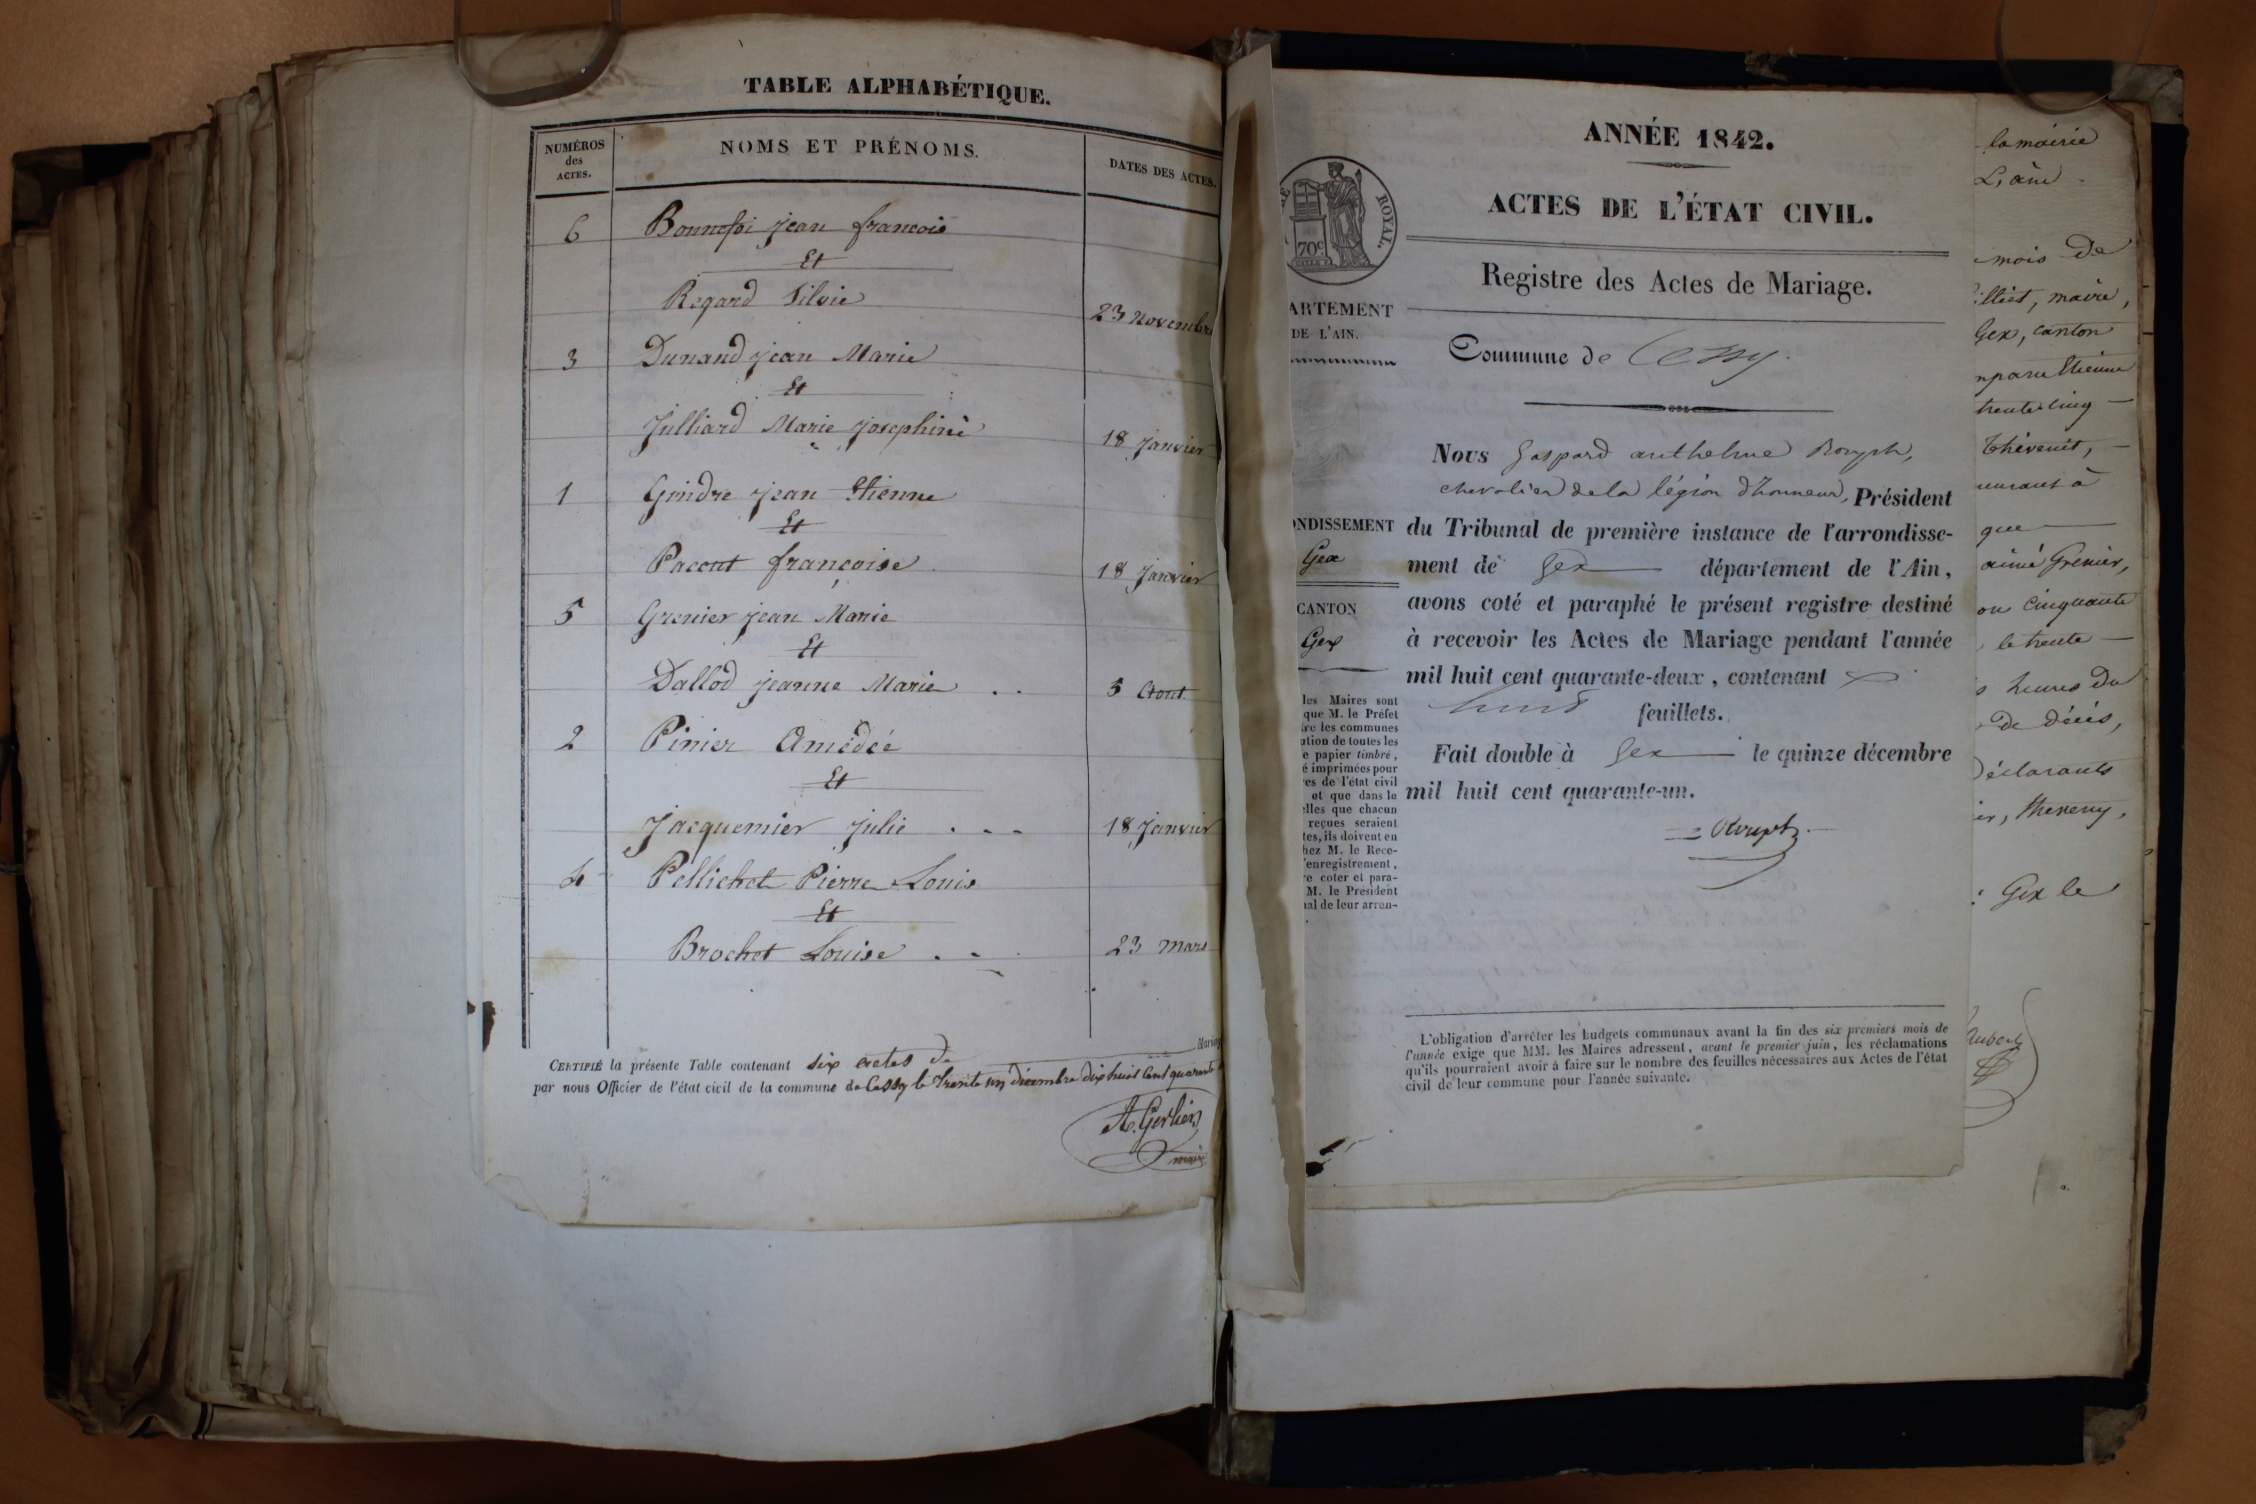 TABLE ALPHABÉTIQUE.
NUMÉROS des ACTES.
NOMS ET PRÉNOMS.
DATES DES ACTES.
6 Bonnefoi jean françois
Et
Regard Silvie 23 novembre
3 Dunand jean Marie
Et
Julliard Marie Josephine 18 janvier
1 Grindre jean Etienne
Et
Pacout françoise 18 janvier
5 Grenier jean Marie
Et
Dallod jeanne Marie . . 5 Aout
2 Pinier Amédée
Et
Jacquemier Julie . . . 18 janvier
4 Pellichet Pierre Louis
Et
Brochet Louise . . 23 mars
CERTIFIÉ la présente Table contenant six actes de Mariage
par nous Officier de l'état civil de la commune de Cessy le trente un décembre dix huit cent quarante
A. Gerlier
maire
ANNÉE 1842.
ACTES DE L'ÉTAT CIVIL.
ROYAL.
70c
Registre des Actes de Mariage.
ARTEMENT
DE L'AIN.
Commune de Cessy.
Nous Gaspard anthelme Rouph,
chevalier de la légion d'honneur, Président
du Tribunal de première instance de l'arrondisse-
ment de Gex département de l'Ain,
avons coté et paraphé le présent registre destiné
à recevoir les Actes de Mariage pendant l'année
mil huit cent quarante-deux, contenant
huit feuillets.
Fait double à Gex le quinze décembre
mil huit cent quarante-un.
Rouph
ONDISSEMENT
Gex
CANTON
Gex
les Maires sont
que M. le Préfet
re les communes
ation de toutes les
e papier timbré,
é imprimées pour
es de l'état civil
et que dans le
elles que chacun
reçues seraient
tes, ils doivent en
hez M. le Rece-
'enregistrement,
e coter et para-
M. le Président
nal de leur arron-
L'obligation d'arrêter les budgets communaux avant la fin des six premiers mois de
l'année exige que MM. les Maires adressent, avant le premier juin, les réclamations
qu'ils pourraient avoir à faire sur le nombre des feuilles nécessaires aux Actes de l'état
civil de leur commune pour l'année suivante.
la mairie
L'ain
mois de
illiet, maire,
Gex, canton
nparu Etienne
trente cinq
thévenit,
eurant à
que
aimé Grenier,
ou cinquante
le trente
s heures du
de décès,
Déclarants
er, thereny,
Gex le